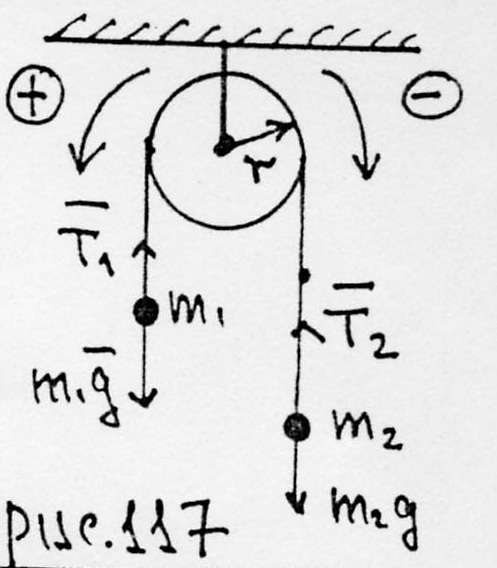 + −
r
T̅₁
m₁
T̅₂
m₁g̅
m₂
m₂g
рис.117